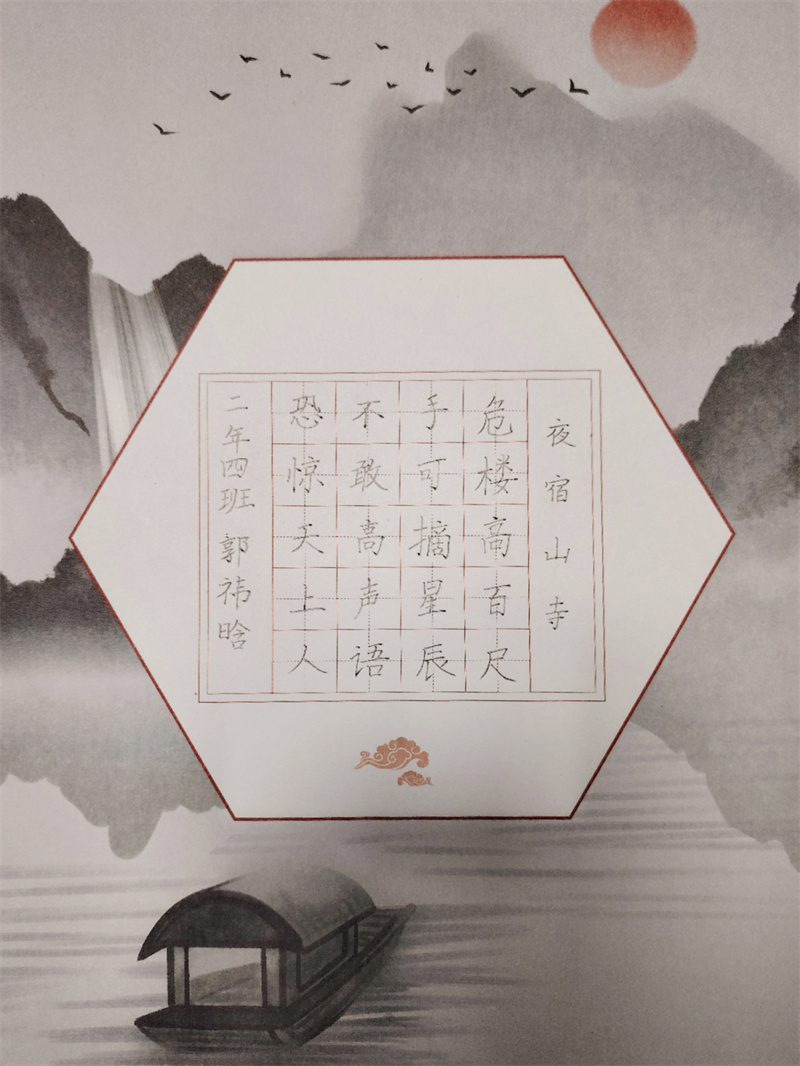 夜宿山寺
危楼高百尺
手可摘星辰
不敢高声语
恐惊天上人
二年四班 郭祎晗